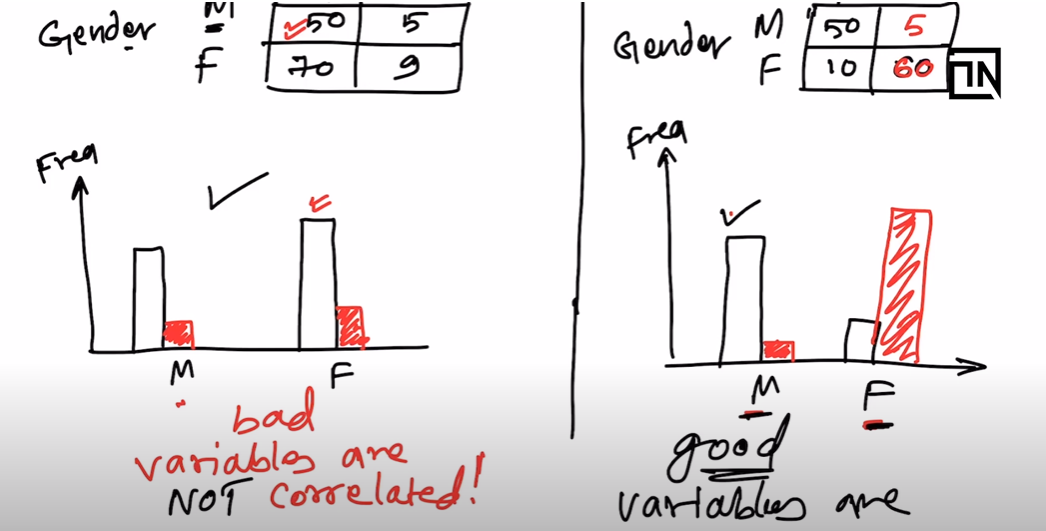 M
Gender 50 5
F 70 9
Freq
M F
bad
variables are
NOT correlated!
M 50 5
Gender
F 10 60
Freq
M F
good
variables are